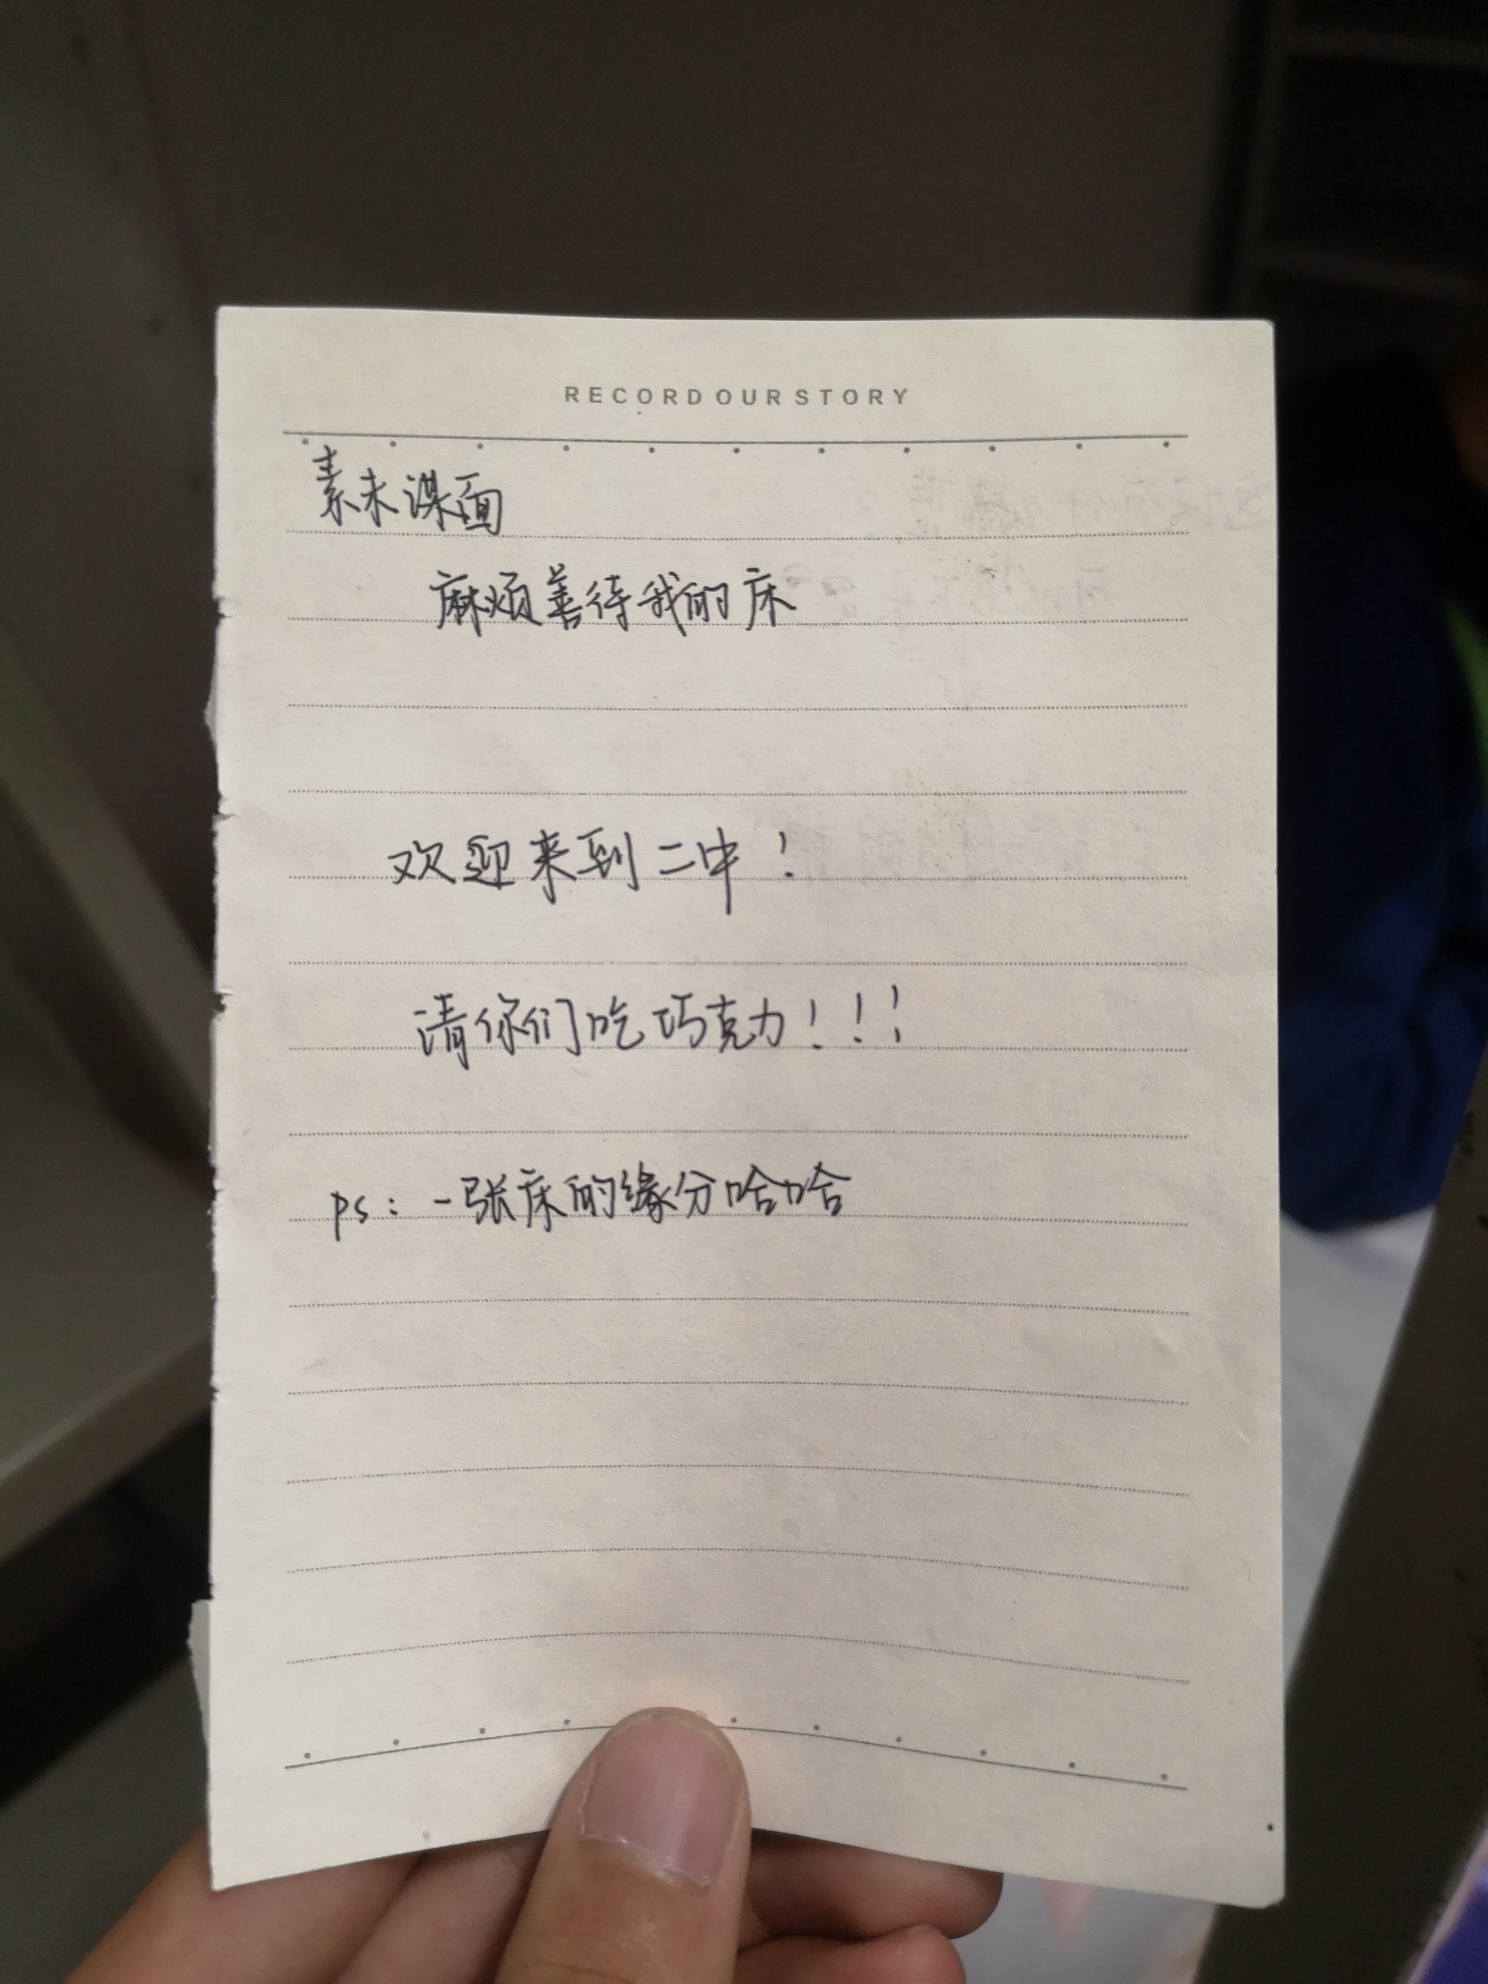 RECORD OUR STORY
素未谋面
麻烦善待我的床
欢迎来到二中！
请你们吃巧克力！！！
ps：一张床的缘分哈哈